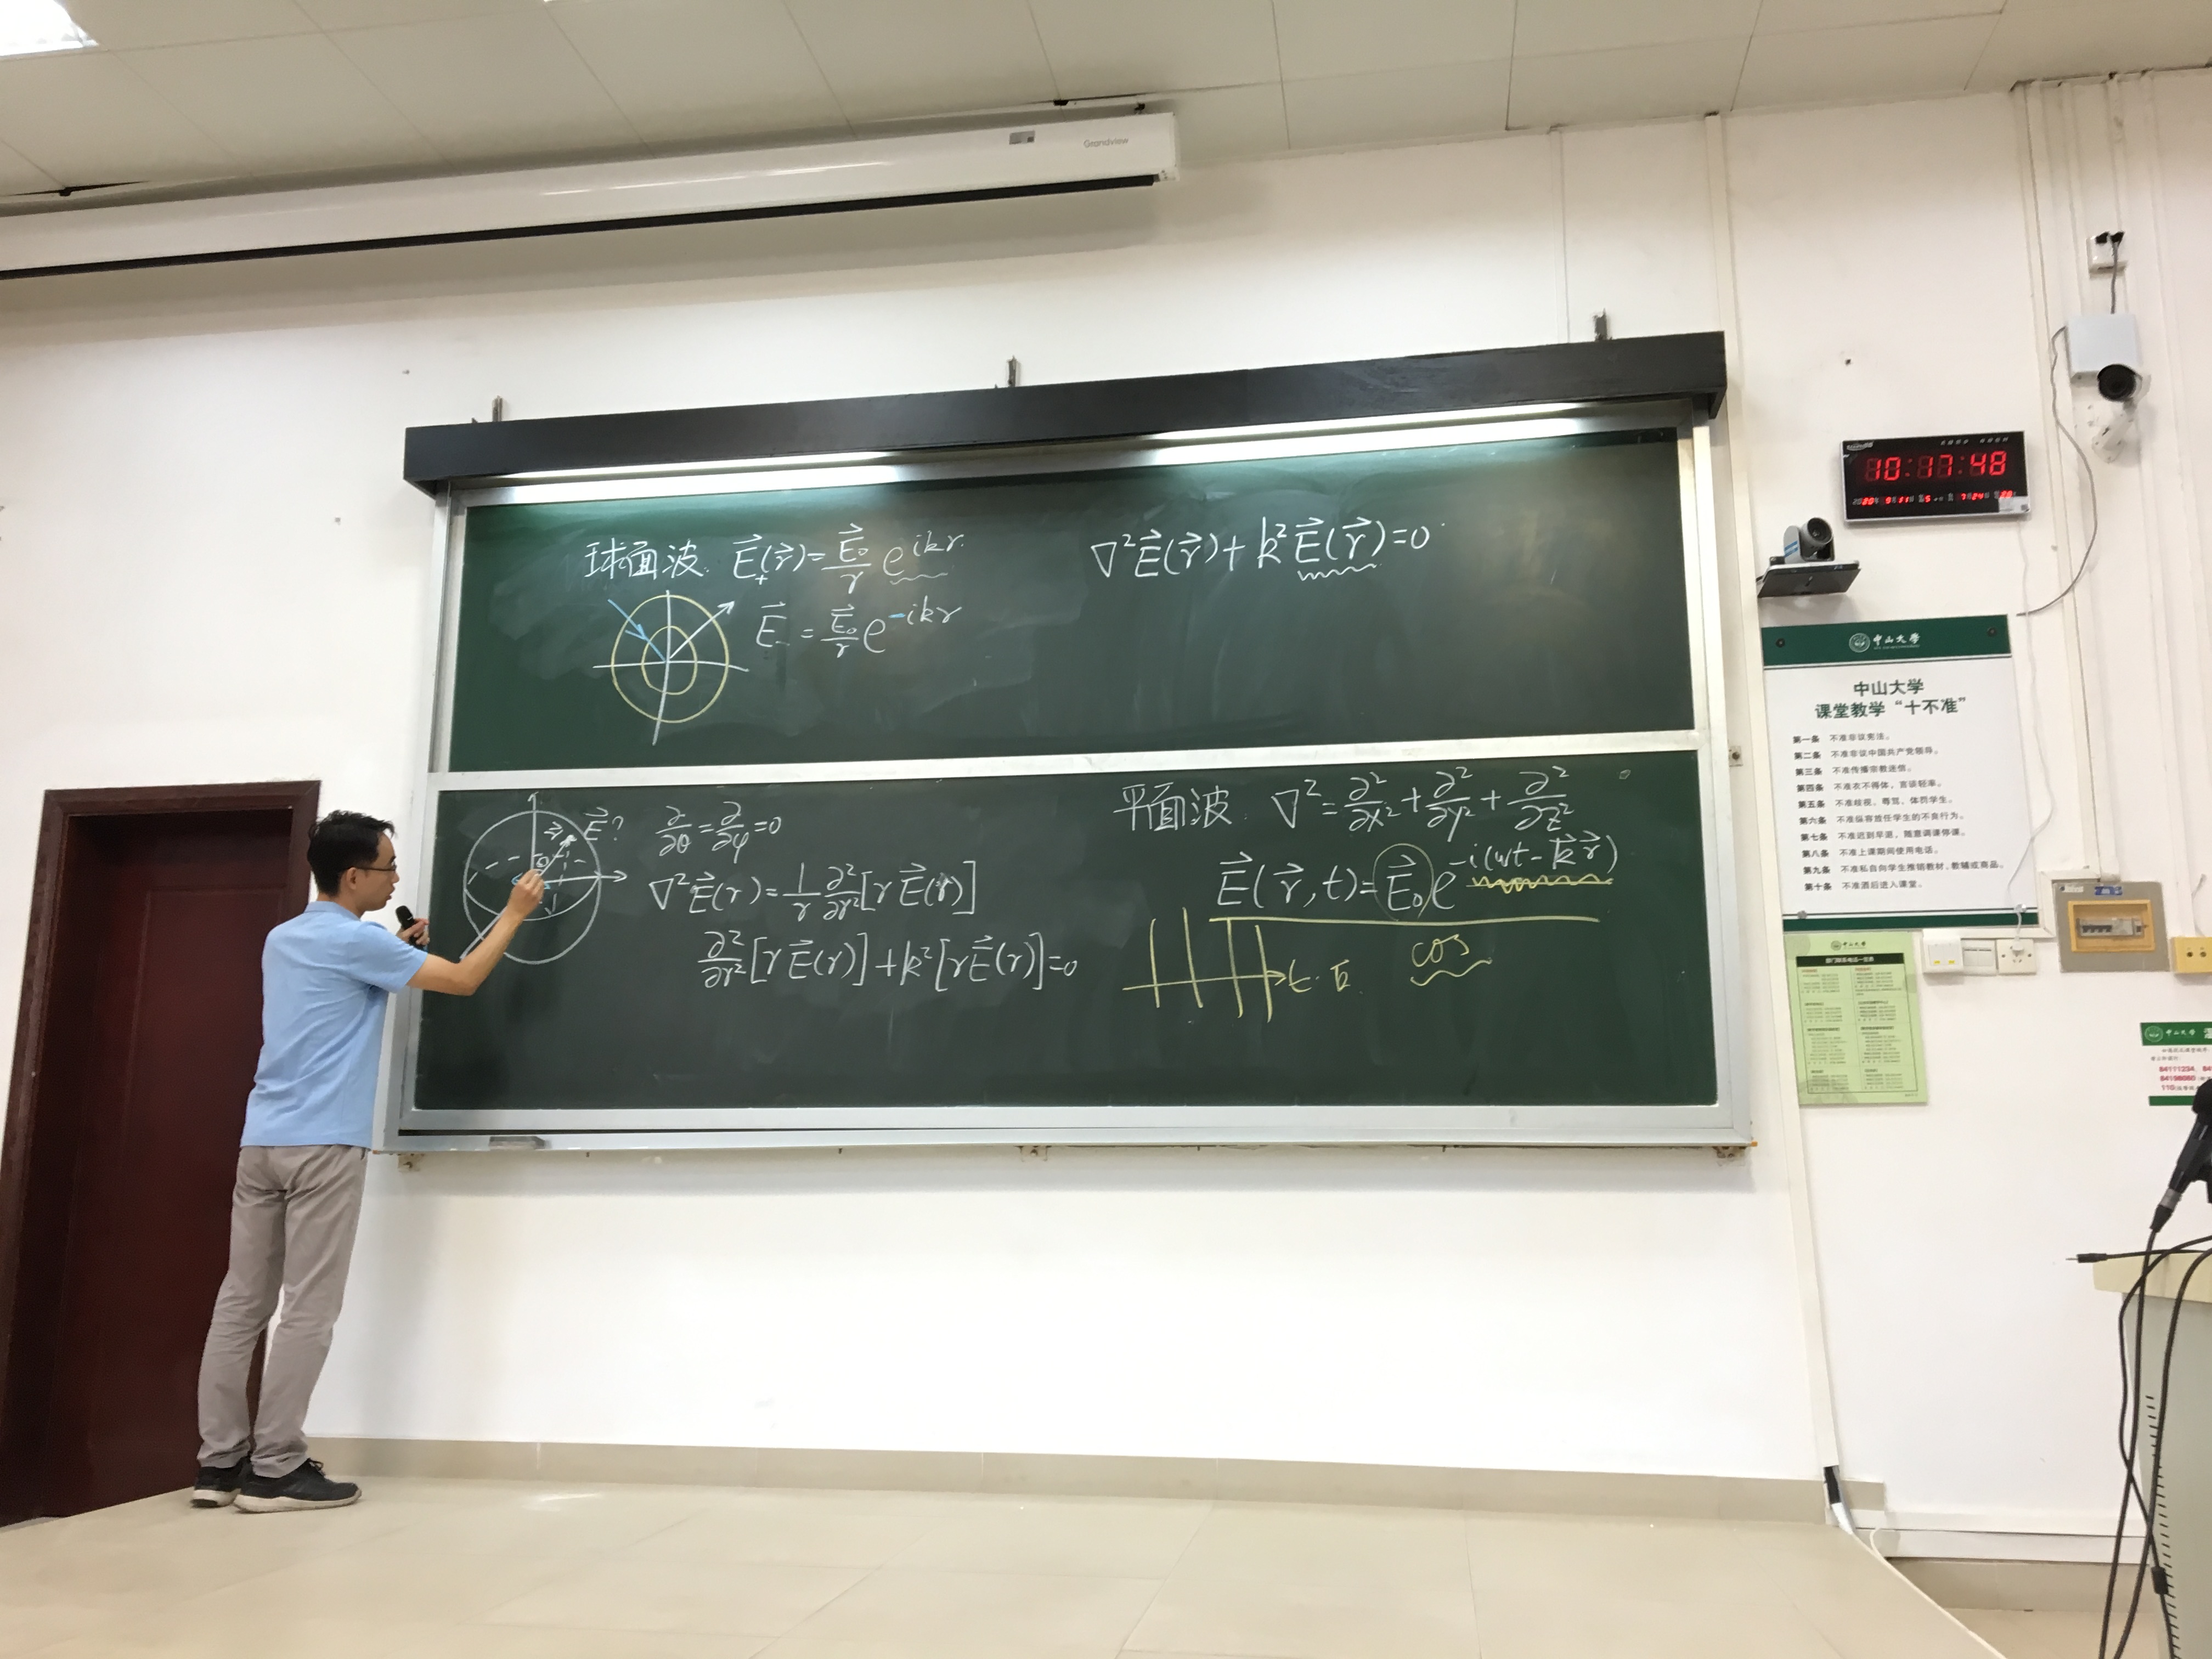 Grandview
球面波. E⃗₊(r⃗)=E⃗₀/r e^{ikr}.
E⃗₋ = E⃗₀/r e^{-ikr}
∇²E⃗(r⃗)+k²E⃗(r⃗)=0
r⃗ E⃗?
θ
∂/∂θ=∂/∂φ=0
∇²E⃗(r)=1/r ∂²/∂r²[rE⃗(r)]
∂²/∂r²[rE⃗(r)]+k²[rE⃗(r)]=0
平面波. ∇²=∂²/∂x²+∂²/∂y²+∂²/∂z²
E⃗(r⃗,t)=E⃗₀e^{-i(ωt-k⃗r⃗)}
cos
10:17:48
中山大学
中山大学
课堂教学“十不准”
第一条 不准非议宪法。
第二条 不准非议中国共产党领导。
第三条 不准传播宗教迷信。
第四条 不准衣不得体，言谈轻率。
第五条 不准歧视、辱骂、体罚学生。
第六条 不准纵容放任学生的不良行为。
第七条 不准迟到早退，随意调课停课。
第八条 不准上课期间使用电话。
第九条 不准私自向学生推销教材、教辅或商品。
第十条 不准酒后进入课堂。
中山大学
部门联系电话一览表
中山大学
84111234、
110